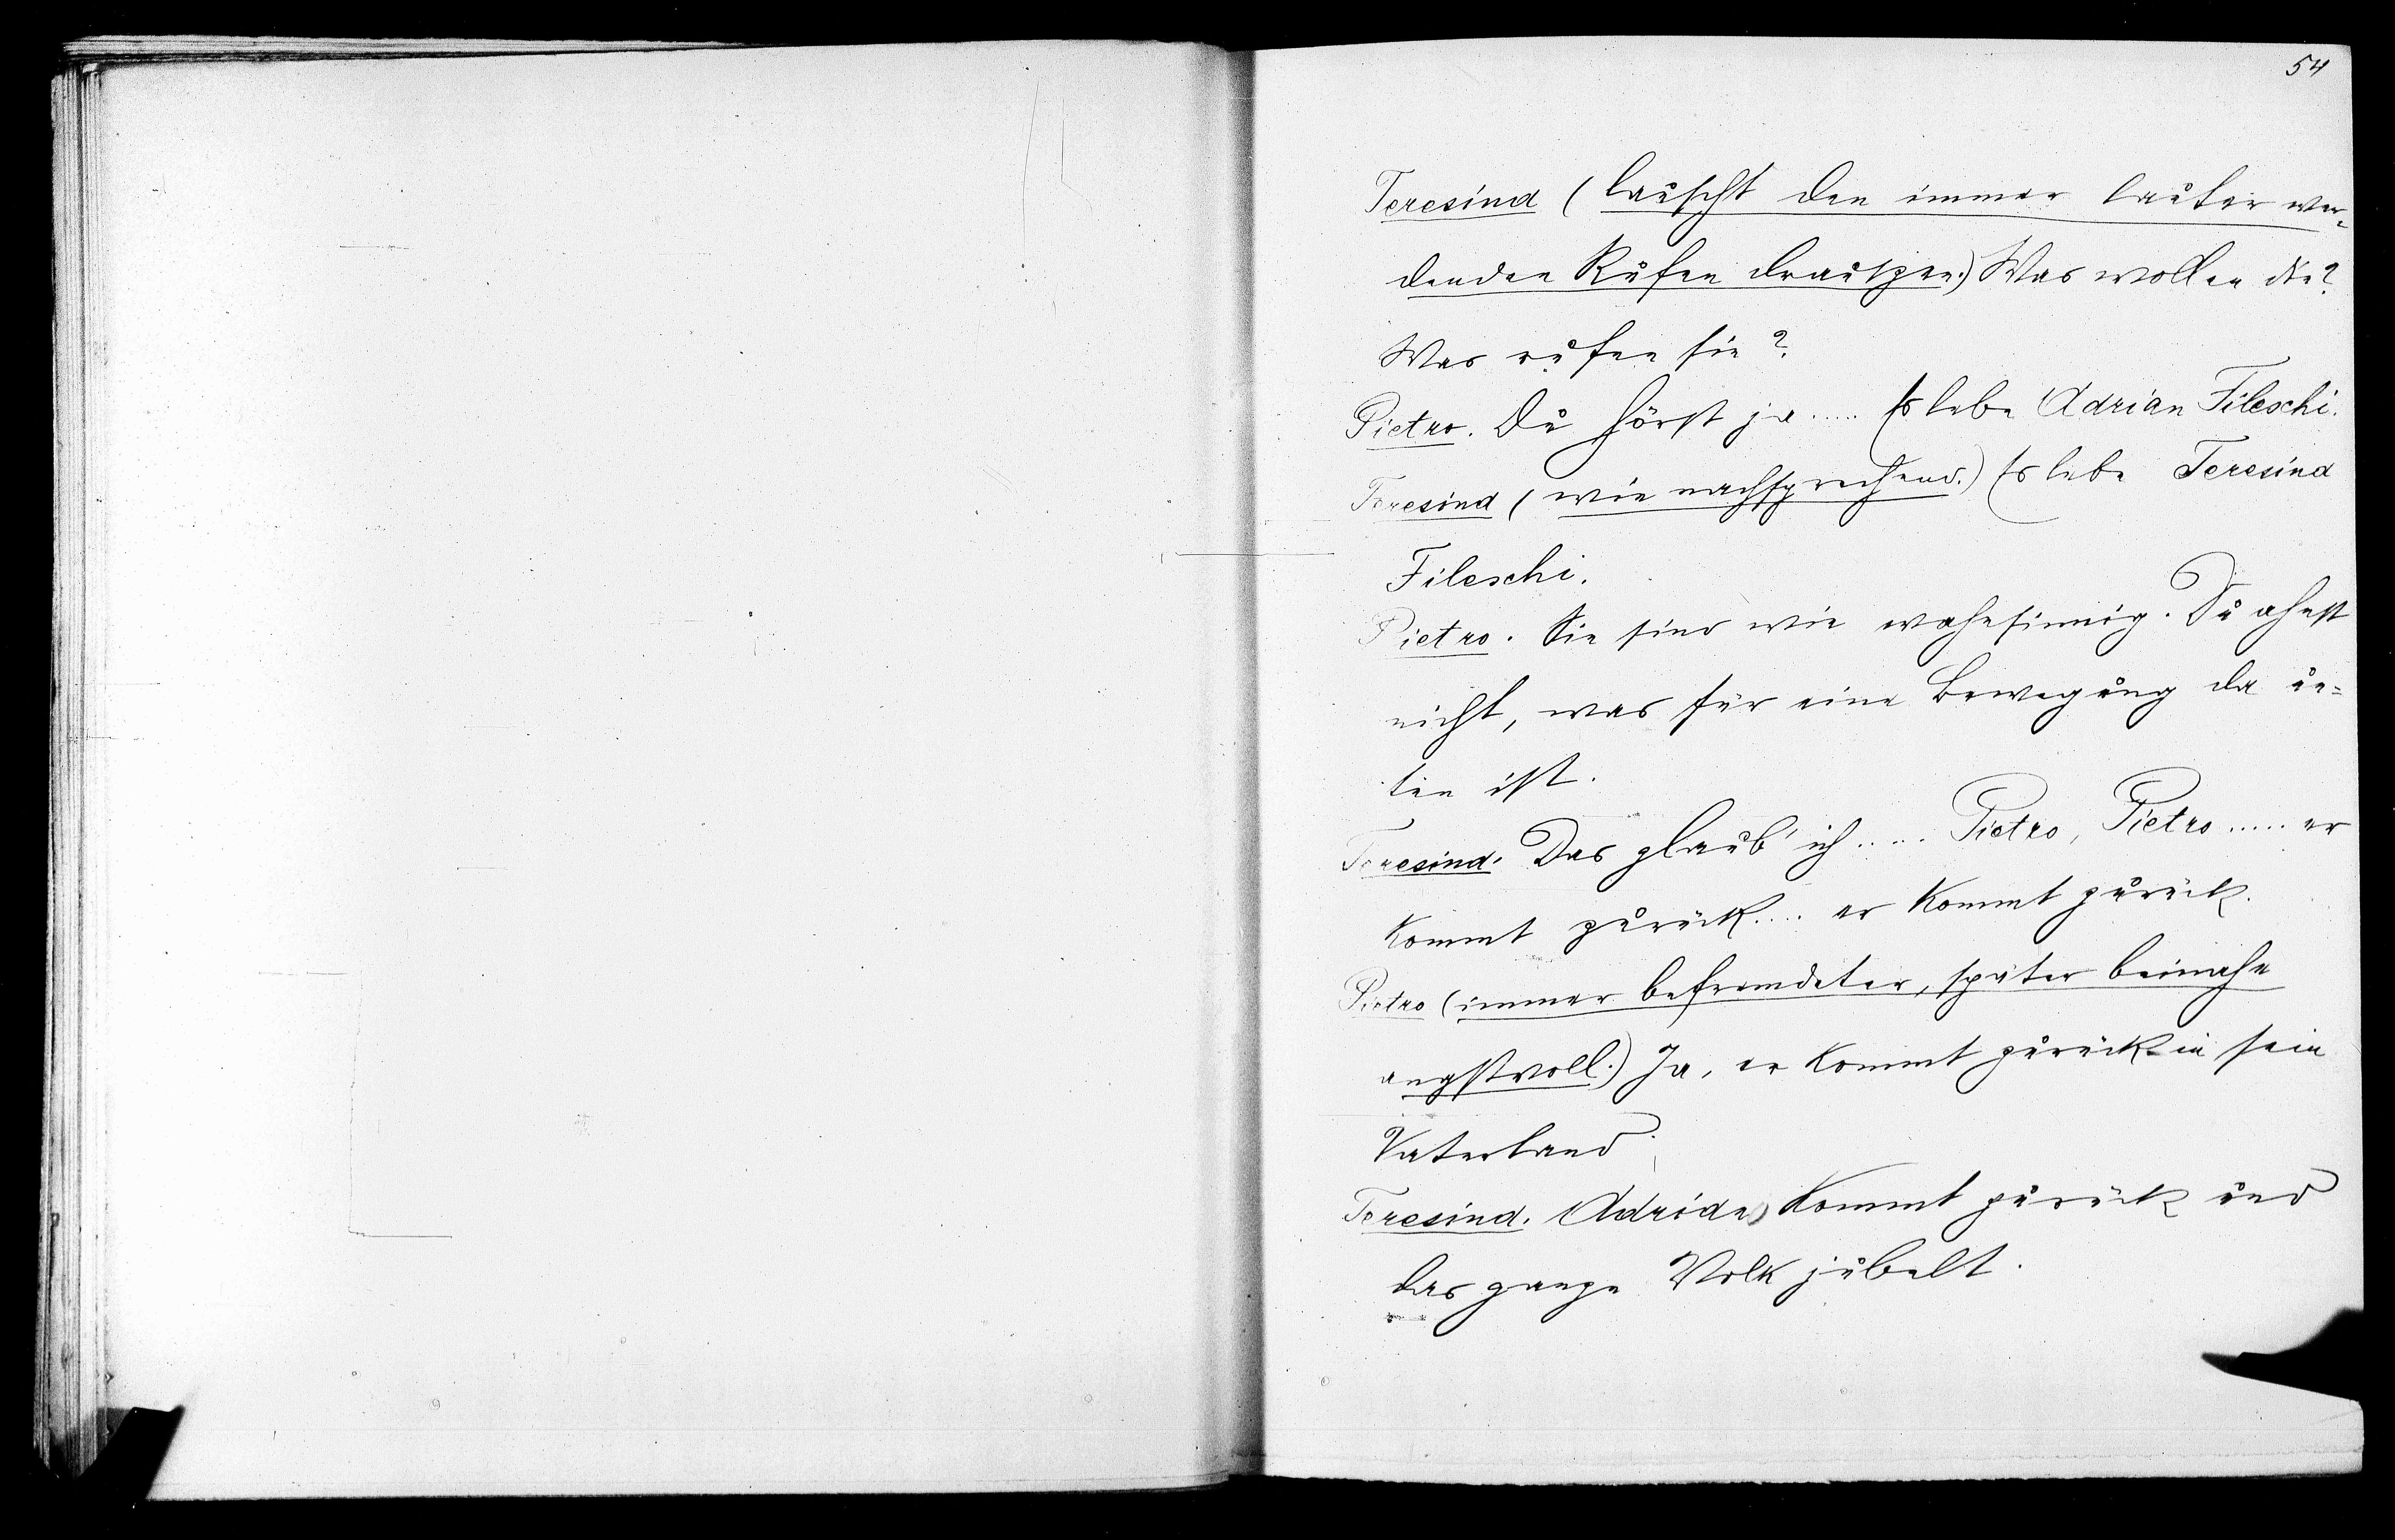 54
Teresina (lauscht den immer lauter wer-
denden Rufen draußen.) Was wollen die?
Was rufen sie?
Pietro. Du hörst ja ..... Es lebe Adrian Fileschi.
Teresina (wie nachsprechend.) Es lebe Teresina
Fileschi.
Pietro. Sie sind wie wahnsinnig. Du ahnst
nicht, was für eine Bewegung da un=
ten ist.
Teresina. Das glaub' ich ..... Pietro, Pietro ..... er
kommt zurück .... er kommt zurück.
Pietro (immer befremdeter, später beinahe
angstvoll.) Ja, er kommt zurück in sein
Vaterland.
Teresina. Adrian kommt zurück und
das ganze Volk jubelt.